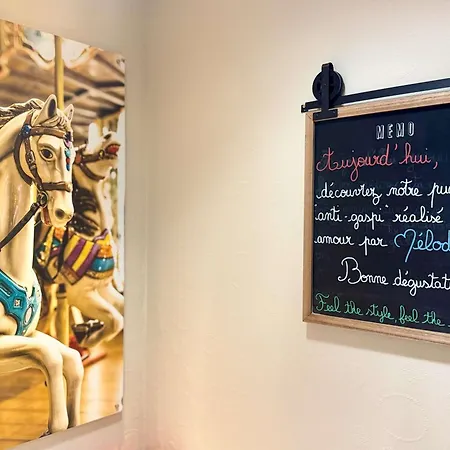 MEMO
Aujourd'hui,
découvrez notre
"anti-gaspi" réalisé
amour par
Bonne
Feel the style, feel the